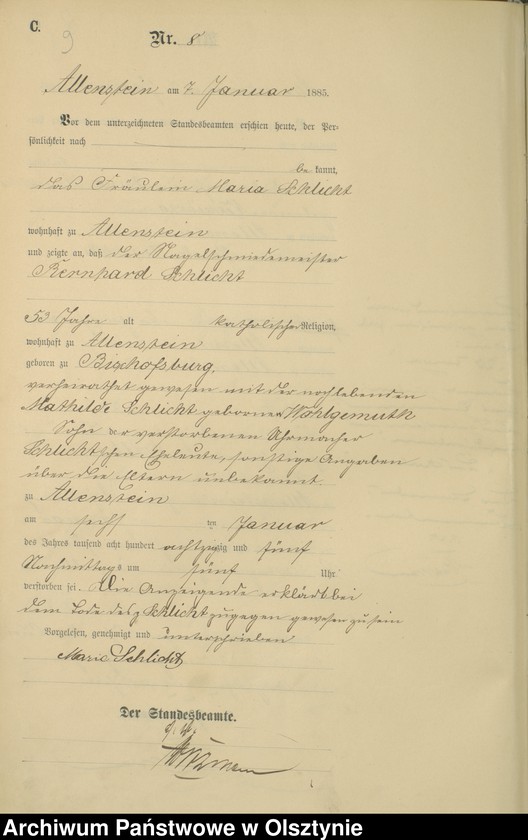 C.
9
Nr. 8
Allenstein am 7. Januar 1885.
Vor dem unterzeichneten Standesbeamten erschien heute, der Per-
sönlichkeit nach
be kannt,
das Fräulein Maria Schlicht
wohnhaft zu Allenstein
und zeigte an, daß der Nagelschmiedemeister
Bernhard Schlicht
53 Jahre alt katholischer Religion,
wohnhaft zu Allenstein
geboren zu Bischofsburg,
verheirathet gewesen mit der nochlebenden
Mathilde Schlicht geborenen Wohlgemuth
Sohn der verstorbenen Uhrmacher
Schlicht'schen Eheleute, sonstige Angaben
über die Eltern unbekannt.
zu Allenstein
am sechs ten Januar
des Jahres tausend acht hundert achtzig und fünf
Nachmittags um fünf Uhr
verstorben sei. Die Anzeigende erklärt bei
dem Tode des Schlicht zugegen gewesen zu sein
Vorgelesen, genehmigt und unterschrieben
Marie Schlicht
Der Standesbeamte.
Archiwum Państwowe w Olsztynie